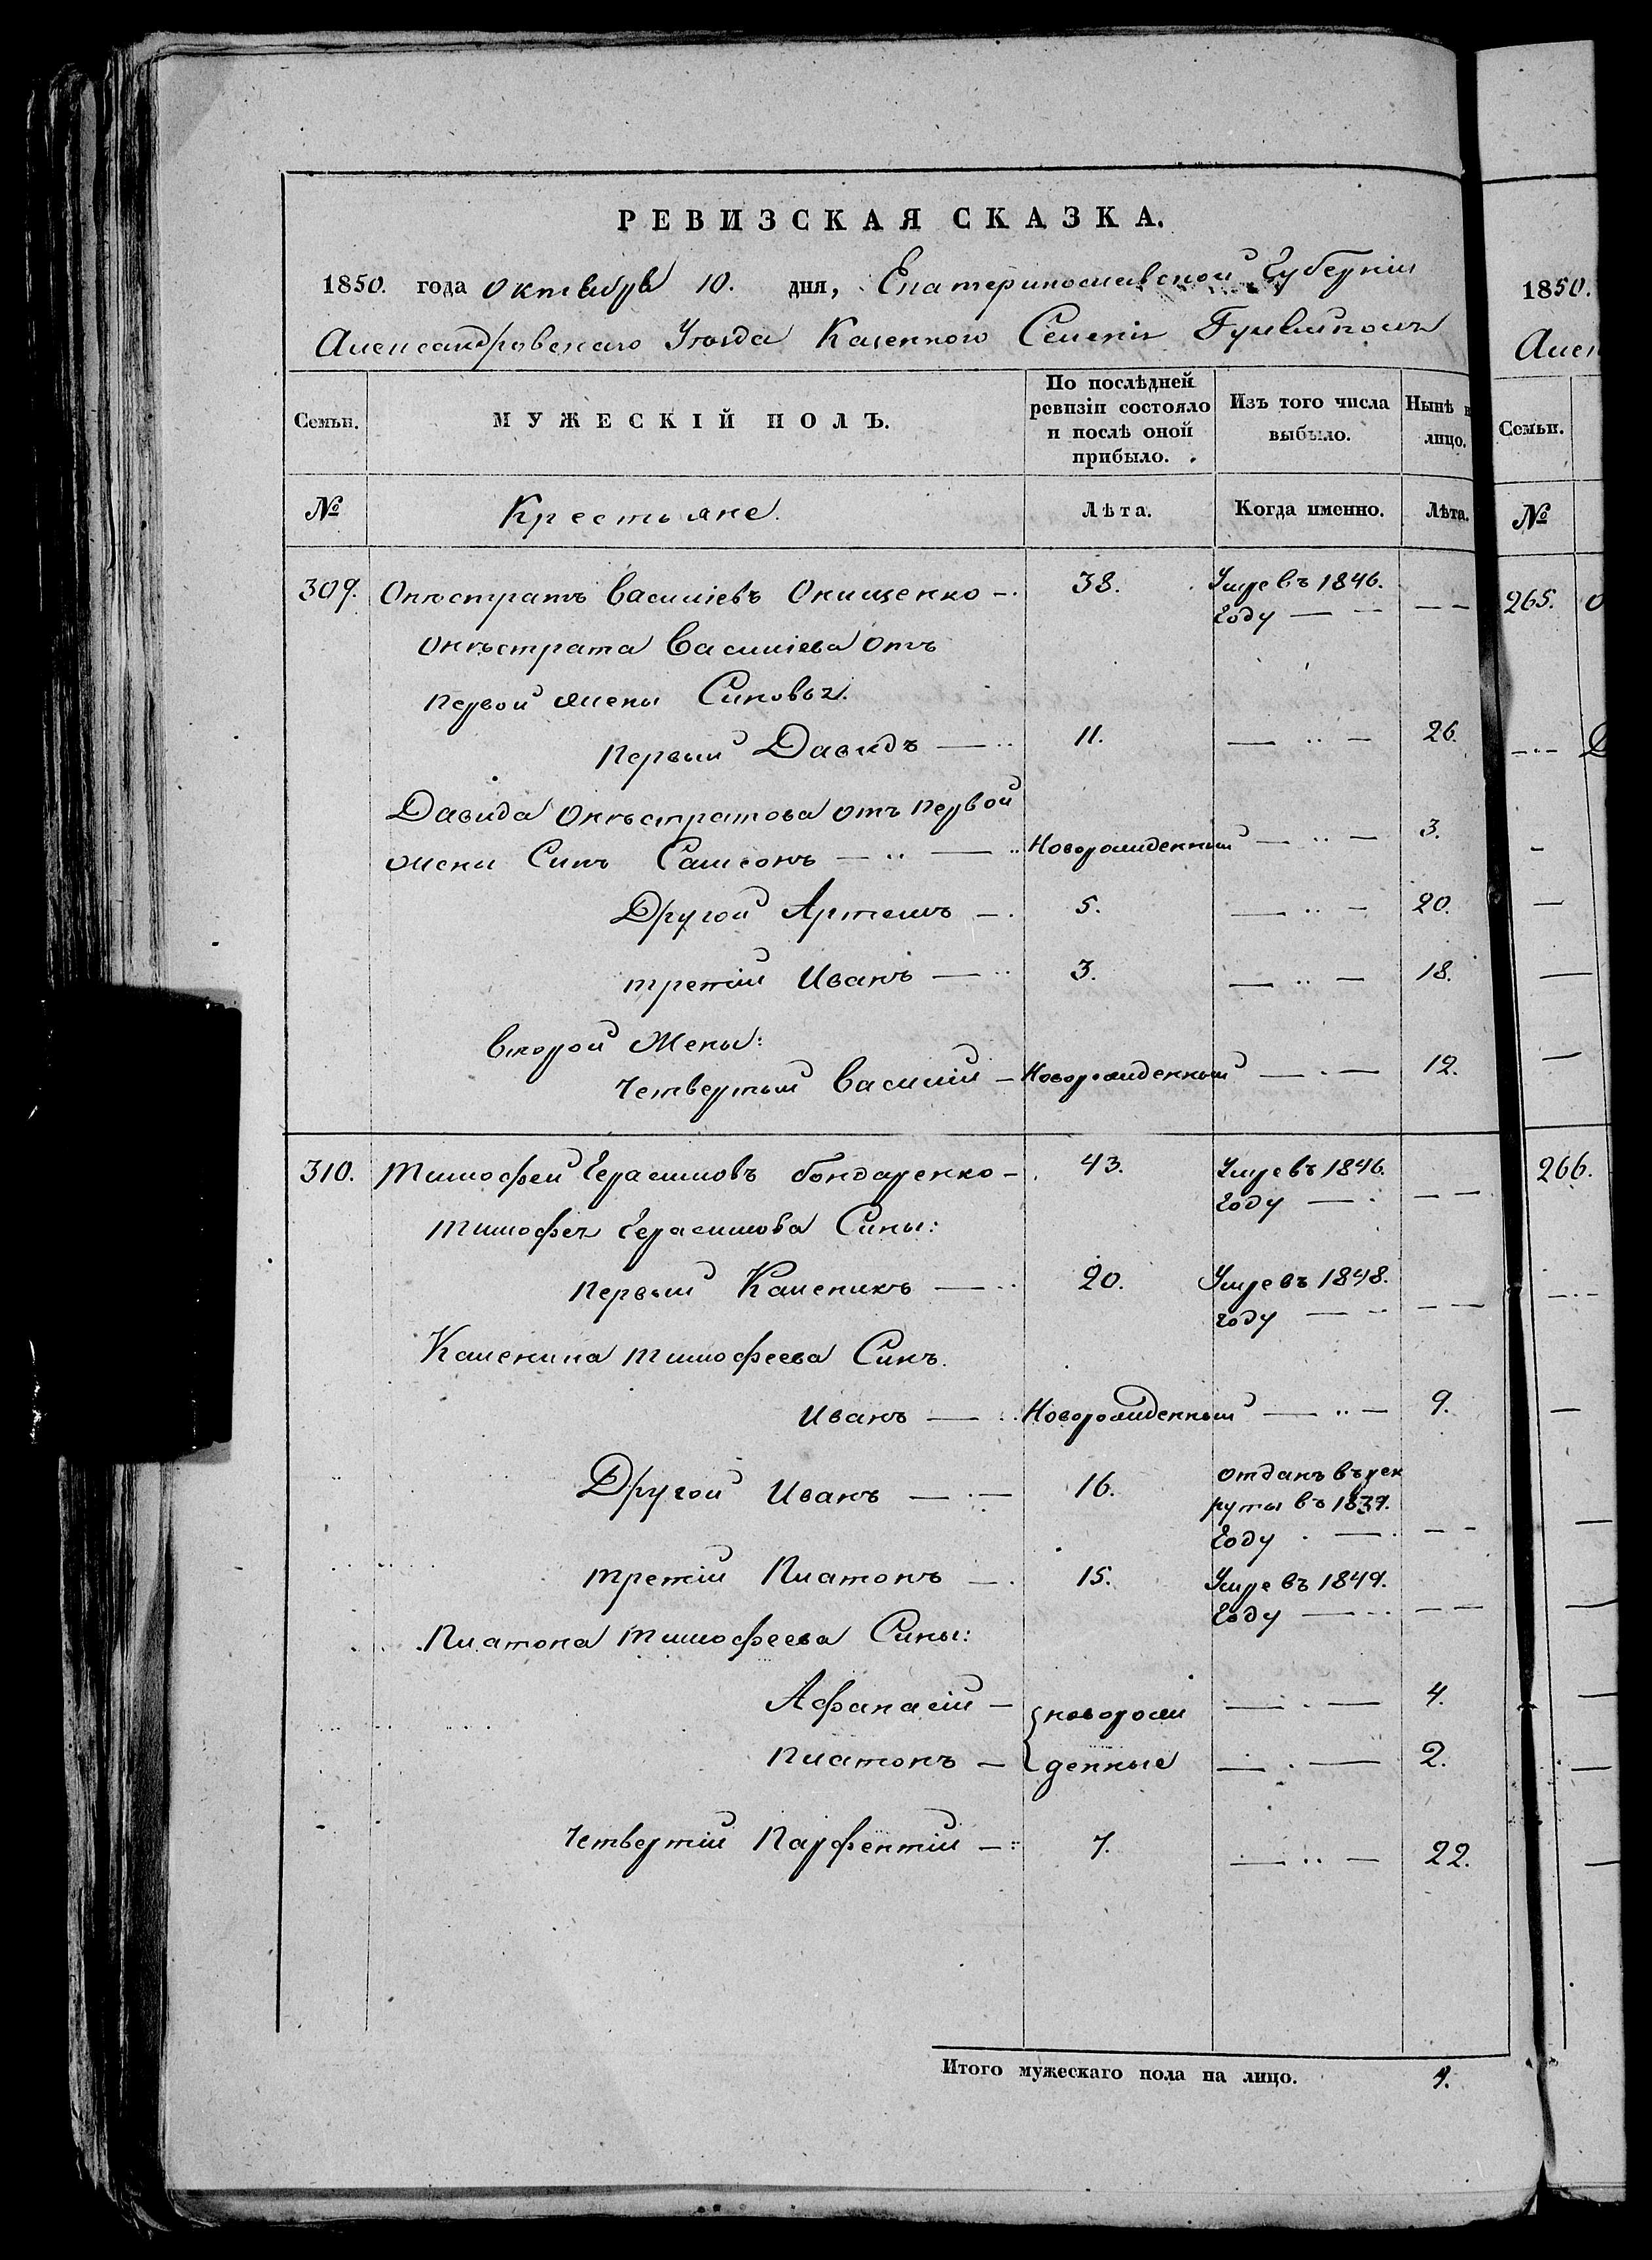 РЕВИЗСКАЯ СКАЗКА.
1850. года Октября 10. дня, Екатеринославской Губерніи
Александровскаго Уѣзда Казенного Селенія
Семьи. МУЖЕСКІЙ ПОЛЪ. По послѣдней ревизіи состояло и послѣ оной прибыло. Изъ того числа выбыло. Нынѣ н лицо.
№ Крестьяне. Лѣта. Когда именно. Лѣта.
309. Онѣстратъ Васильевъ Онищенко —. 38. Умре въ 1846.
Году — — —
Онѣстрата Васильева отъ
первой жены Сыновья.
Первый Давидъ — 11. — 26.
Давида Онѣстратова отъ первой
жены Сынъ Самсонъ — Новорожденный — 3.
Другой Артемъ — 5. — 20.
третій Иванъ — 3. — 18.
второй Жены:
Четвертый Василій — Новорожденный — 12.
310. Тимофей Герасимовъ Бондаренко — 43. Умре въ 1846.
Году — — —
Тимофея Герасимова Сыны:
Первый Каленикъ — 20. Умре въ 1848.
году — — —
Каленика Тимофеева Сынъ.
Иванъ — Новорожденный — 9.
Другой Иванъ — 16. отданъ въ рек
руты въ 1839.
Году — — —
третій Платонъ — 15. Умре въ 1849.
Году — — —
Платона Тимофеева Сыны:
Афанасій — новорож — 4.
Платонъ — денные — 2.
Четвертій Парфентій — 7. — 22.
Итого мужескаго пола на лицо. 9.
1850.
Алек
Семьи.
№
265.
266.